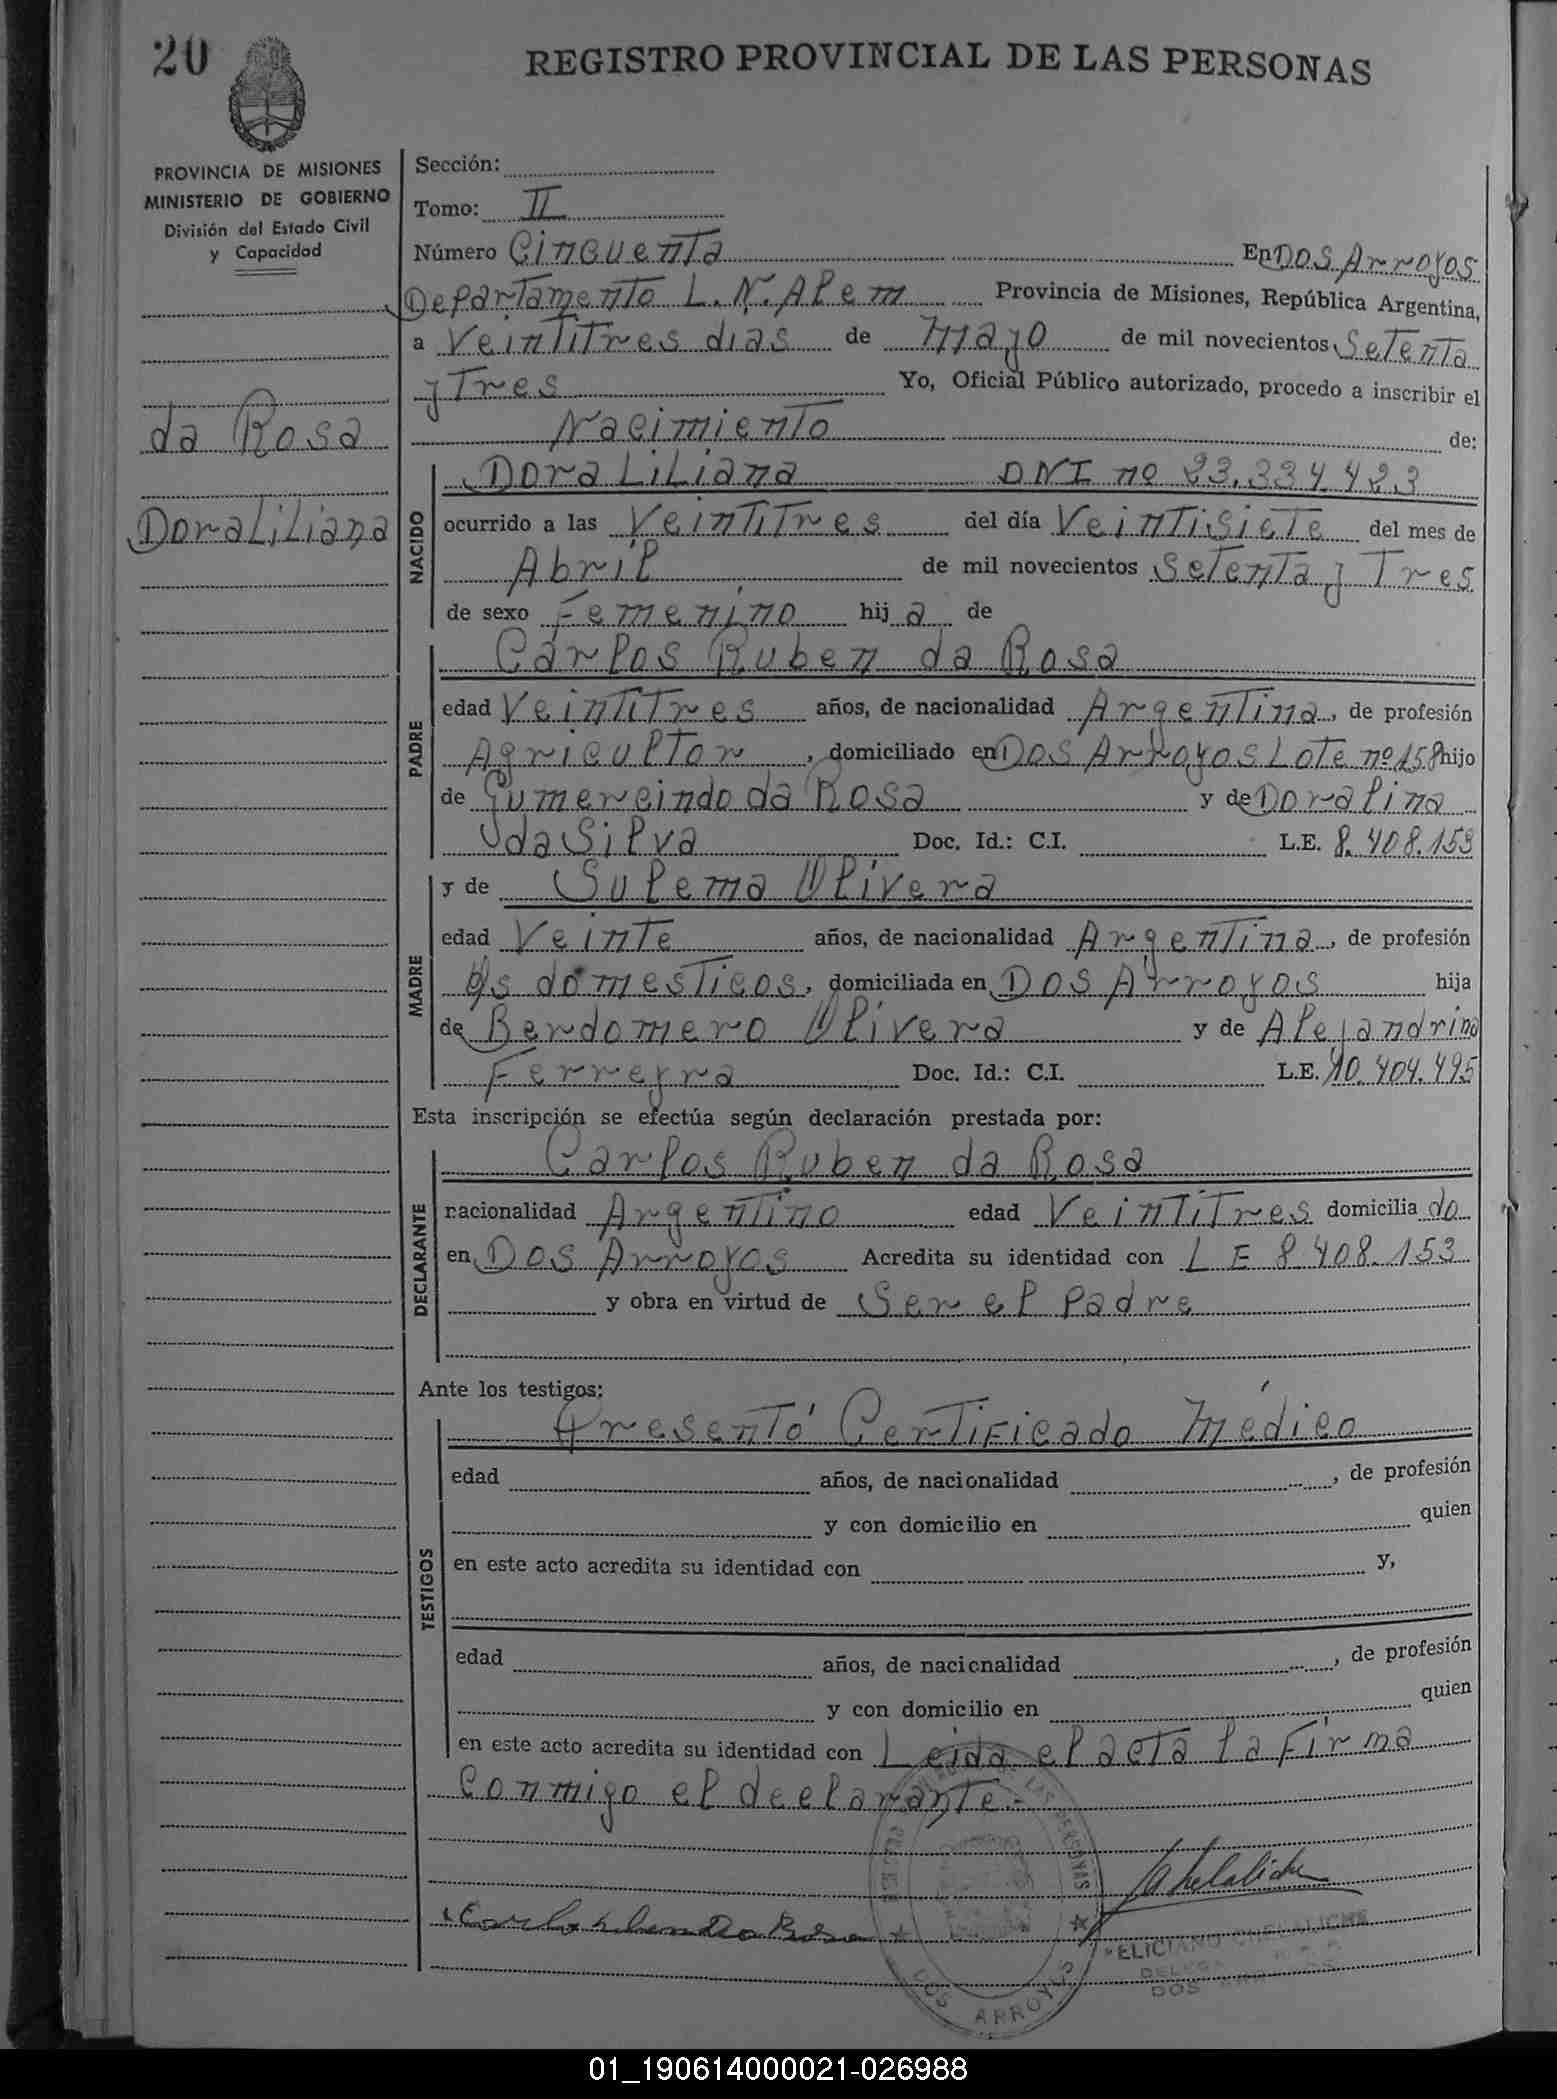 20
REGISTRO PROVINCIAL DE LAS PERSONAS
PROVINCIA DE MISIONES
MINISTERIO DE GOBIERNO
División del Estado Civil
y Capacidad
da Rosa
Dora Liliana
Sección:
Tomo: II
Número Cincuenta En Dos Arroyos
Departamento L. N. Alem Provincia de Misiones, República Argentina,
a Veintitres dias de Mayo de mil novecientos Setenta
y Tres Yo, Oficial Público autorizado, procedo a inscribir el
Nacimiento de:
NACIDO
Dora Liliana DNI nº 23.334.423
ocurrido a las Veintitres del día Veintisiete del mes de
Abril de mil novecientos Setenta y Tres
de sexo Femenino hija de
PADRE
Carlos Ruben da Rosa
edad Veintitres años, de nacionalidad Argentina, de profesión
Agricultor, domiciliado en Dos Arroyos Lote nº 158 hijo
de Gumercindo da Rosa y de Doralina
da Silva Doc. Id.: C.I. L.E. 8.408.153
MADRE
y de Sulema Olivera
edad Veinte años, de nacionalidad Argentina, de profesión
q/s domesticos, domiciliada en Dos Arroyos hija
de Berdomero Olivera y de Alejandrina
Ferreyra Doc. Id.: C.I. L.E. 10.404.495
Esta inscripción se efectúa según declaración prestada por:
DECLARANTE
Carlos Ruben da Rosa
nacionalidad Argentino edad Veintitres domiciliado
en Dos Arroyos Acredita su identidad con L E 8.408.153
y obra en virtud de Ser el padre
Ante los testigos:
TESTIGOS
Presentó Certificado Médico
edad años, de nacionalidad , de profesión
y con domicilio en quien
en este acto acredita su identidad con y,
edad años, de nacionalidad , de profesión
y con domicilio en quien
en este acto acredita su identidad con Leida el acta la firma
conmigo el declarante.-
LAS PERSONAS
DOS ARROYOS
FELICIANO CHELALICHE
DOS ARROYOS
01_190614000021-026988